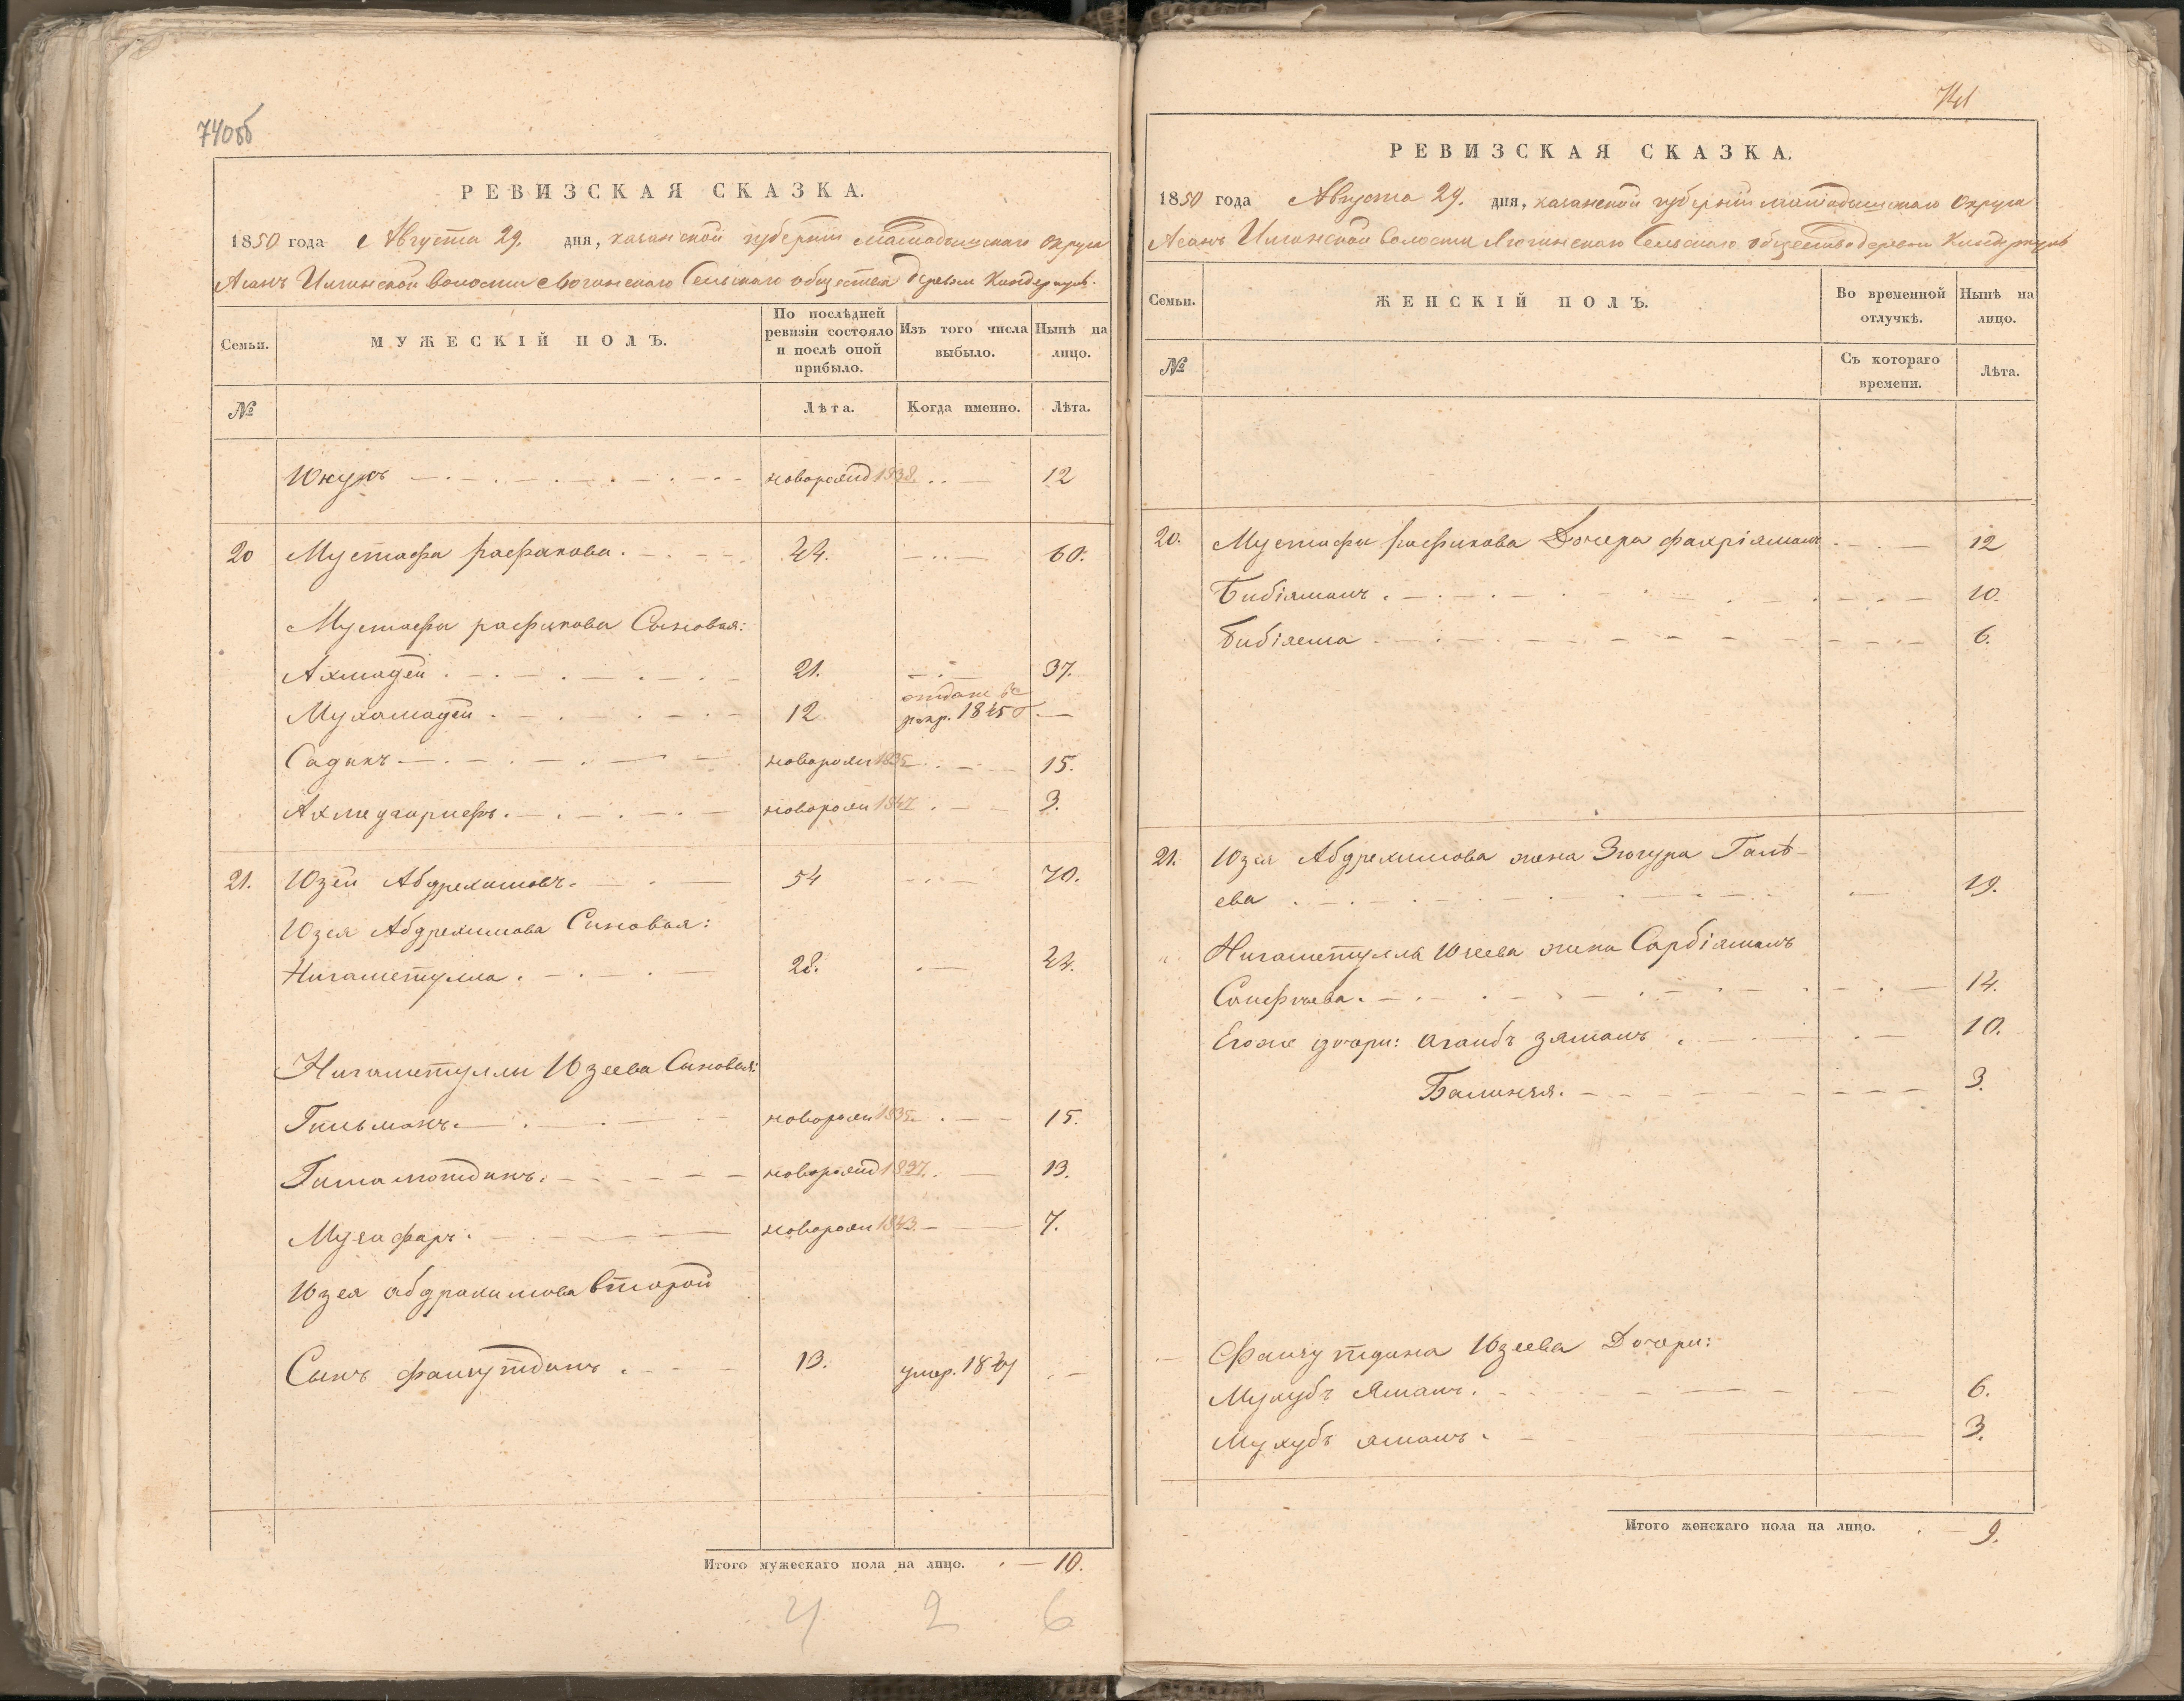 740об
РЕВИЗСКАЯ СКАЗКА.
1850 года Августа 29. дня, казанской губерніи мамадышскаго округа
Асанъ Илгинской волости Сельскаго общества деревни Киндеркуль.
Семьи.
МУЖЕСКІЙ ПОЛЪ.
По послѣдней ревизіи состояло и послѣ оной прибыло.
Изъ того числа выбыло.
Нынѣ на лицо.
№
Лѣта.
Когда именно.
Лѣта.
Юнусъ новорожд 1838. 12
20 Мустафа рафикова. 44. 60.
Мустафы рафикова Сыновья:
Ахмадей 21. 37.
Мухамадей 12 отданъ въ рекр. 1845
Садыкъ новорож 1835 15.
новорож 1847 3.
21. Юзей Абдрехимовъ. 54 70.
Юзея Абдрехимова Сыновья:
Нигаметулла. 28. 44.
Нигаметуллы Юзеева Сыновья:
Гильманъ новорож 1835 15.
новорожд 1837. 13.
Музафаръ. новорож 1843 7.
Юзея абдрахимова второй
Сынъ 13. умер. 1849
Итого мужескаго пола на лицо. 10.
4 2 6
741
РЕВИЗСКАЯ СКАЗКА.
1850 года Августа 29. дня, казанской губерніи мамадышскаго округа
Асанъ Илгинской волости Сельскаго общества деревни Киндеркуль
Семьи.
ЖЕНСКІЙ ПОЛЪ.
Во временной отлучкѣ.
Нынѣ на лицо.
№
Съ котораго времени.
Лѣта.
20. Мустафы рафикова Дочери фахріямалъ 12
Бибіямалъ. 10.
6.
21. Юзея Абдрехимова жена Зюгура Галѣ-
ева 19.
Нигаметуллы Юзеева жена Сарбіямалъ
14.
Егоже дочери: 10.
3.
Юзеева Дочери:
6.
3.
Итого женскаго пола на лицо. 9.